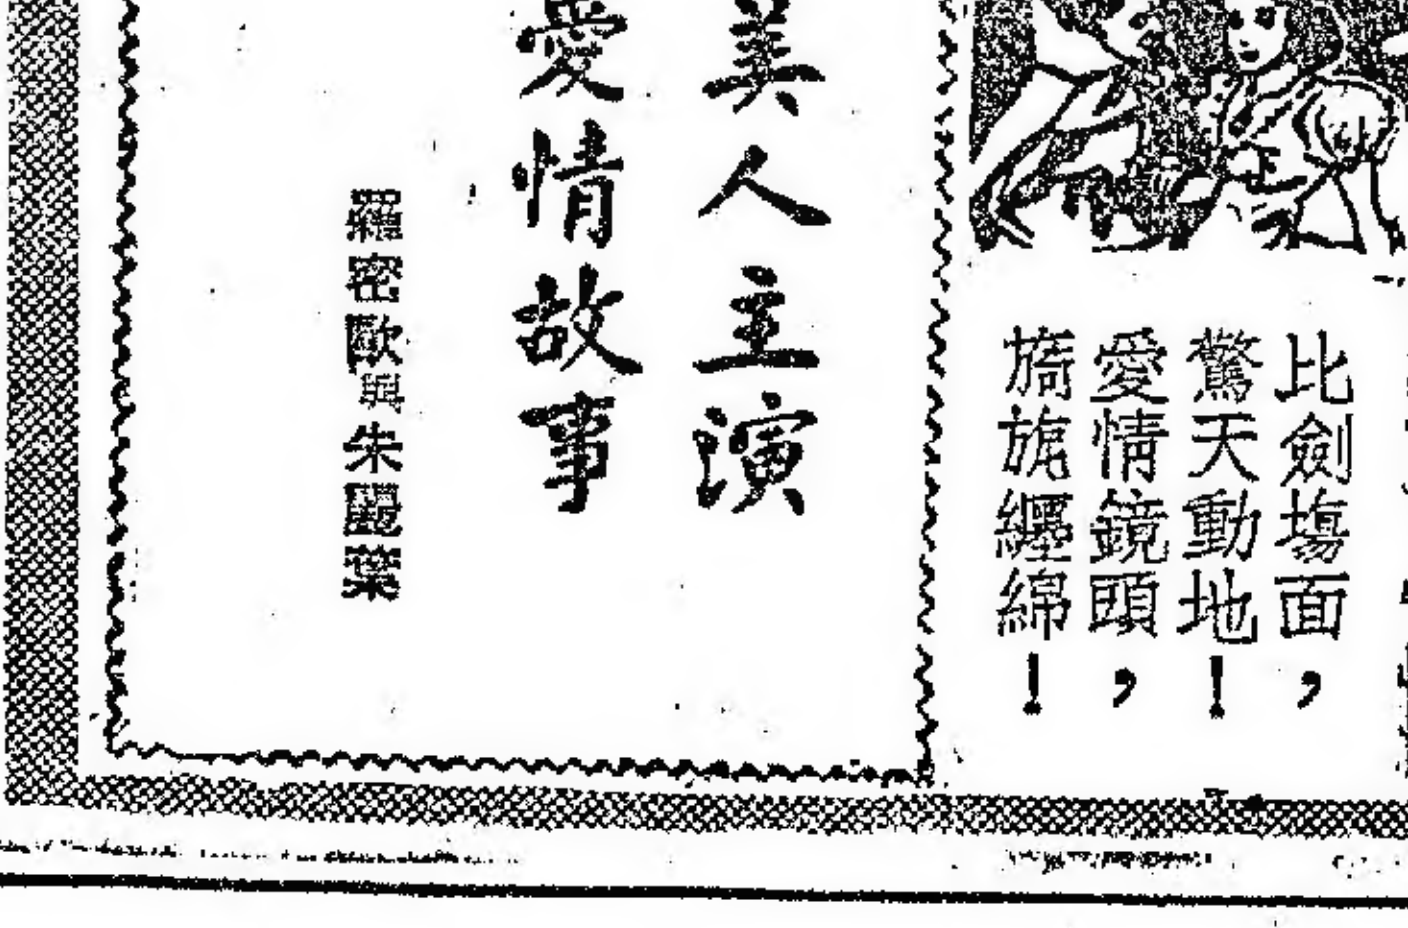 比劍塲面，
驚天動地！
愛情鏡頭，
旖旎纏綿！
美人主演
愛情故事
羅密歐與朱麗葉